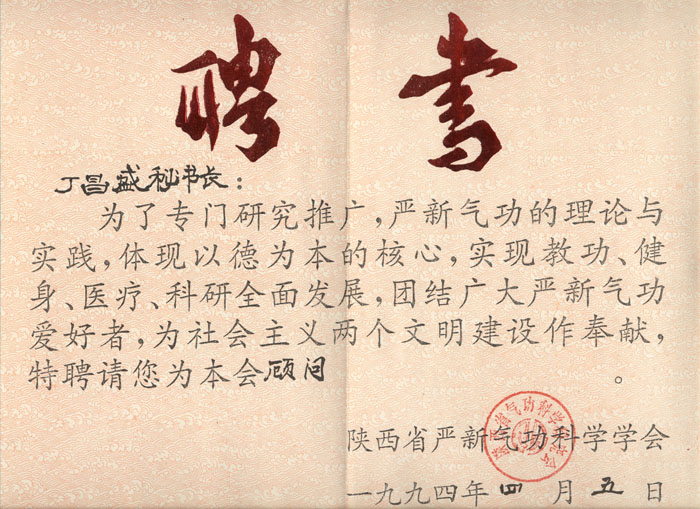 聘书
丁昌盛秘书长：
为了专门研究推广，严新气功的理论与
实践，体现以德为本的核心，实现教功、健
身、医疗、科研全面发展，团结广大严新气功
爱好者，为社会主义两个文明建设作奉献，
特聘请您为本会顾问。
陕西省严新气功科学学会
一九九四年四月五日